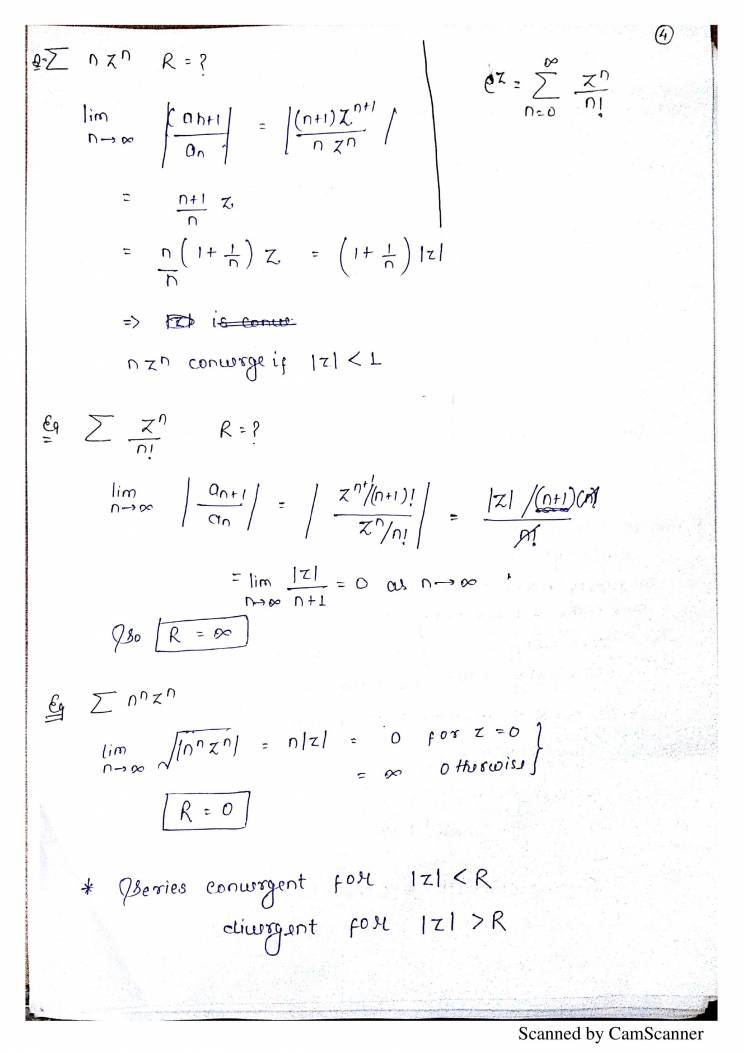 ④
Q. Σ n zⁿ R = ?
lim n→∞ |an+1 / an| = |(n+1) zⁿ⁺¹ / n zⁿ|
= n+1/n z
= n/n (1 + 1/n) z = (1 + 1/n) |z|
⇒ |z| is conve
n zⁿ converge if |z| < 1
e^z = Σ n=0 ∞ zⁿ/n!
Eg Σ zⁿ/n! R = ?
lim n→∞ |an+1 / an| = |zⁿ⁺¹/(n+1)! / zⁿ/n!| = |z| /(n+1)(n! / n!
= lim n→∞ |z| / n+1 = 0 as n→∞
So R = ∞
Eg Σ nⁿzⁿ
lim n→∞ √|nⁿzⁿ| = n|z| = 0 for z = 0 }
= ∞ Otherwise }
R = 0
* Series convergent for |z| < R
divergent for |z| > R
Scanned by CamScanner